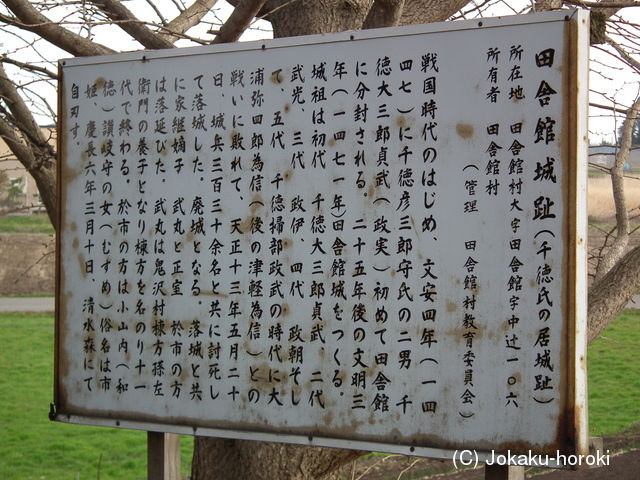 田舎館城趾(千徳氏の居城趾)
所在地 田舎館村大字田舎館字中辻一〇六
所有者 田舎館村
(管理 田舎館村教育委員会)
戦国時代のはじめ、文安四年(一四
四七)に千徳彦三郎守氏の二男 千
徳大三郎貞武(政実)初めて田舎館
に分封される 二十五年後の文明三
年(一四七一年)田舎館城をつくる。
城祖は初代 千徳大三郎貞武 二代
武光、三代 政伊、四代 政朝そし
て、五代 千徳掃部政武の時代に大
浦弥四郎為信(後の津軽為信)との
戦いに敗れて、天正十三年五月二十
日、城兵三百三十余名と共に討死し
て落城した。廃城となる 落城と共
に家継嫡子 武丸と正室 於市の方
は落延びた。武丸は鬼沢村棟方孫左
衛門の養子となり棟方を名のり十一
代で終わる。於市の方は小山内(和
徳)讃岐守の女(むすめ)俗名は市
姫 慶長六年三月十日、清水森にて
自刃す。
(C)Jokaku-horoki